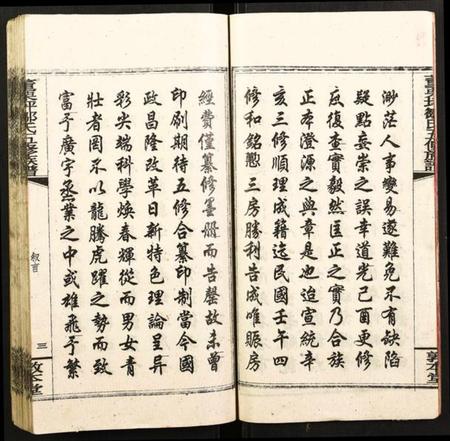 渺茫人事變易遂難免不有缺陷
疑點妄崇之誤幸道光己酉更修
反復查實毅然匡正之實乃合族
正本澄源之典章是也迨宣統辛
亥三修順理成籍迄民國壬午四
修和銘懃三房勝利告成唯賑房
經費僅纂修墨册而告罄故未曾
印刷期待五修合纂印制當今國
政昌隆改革日新特色理論呈异
彩尖端科學煥春輝從而男女青
壯者罔不以龍騰虎躍之勢而致
富于廣宇丞業之中或雄飛于繁
叙言
三
敦本堂
敦本堂
氏五修族譜